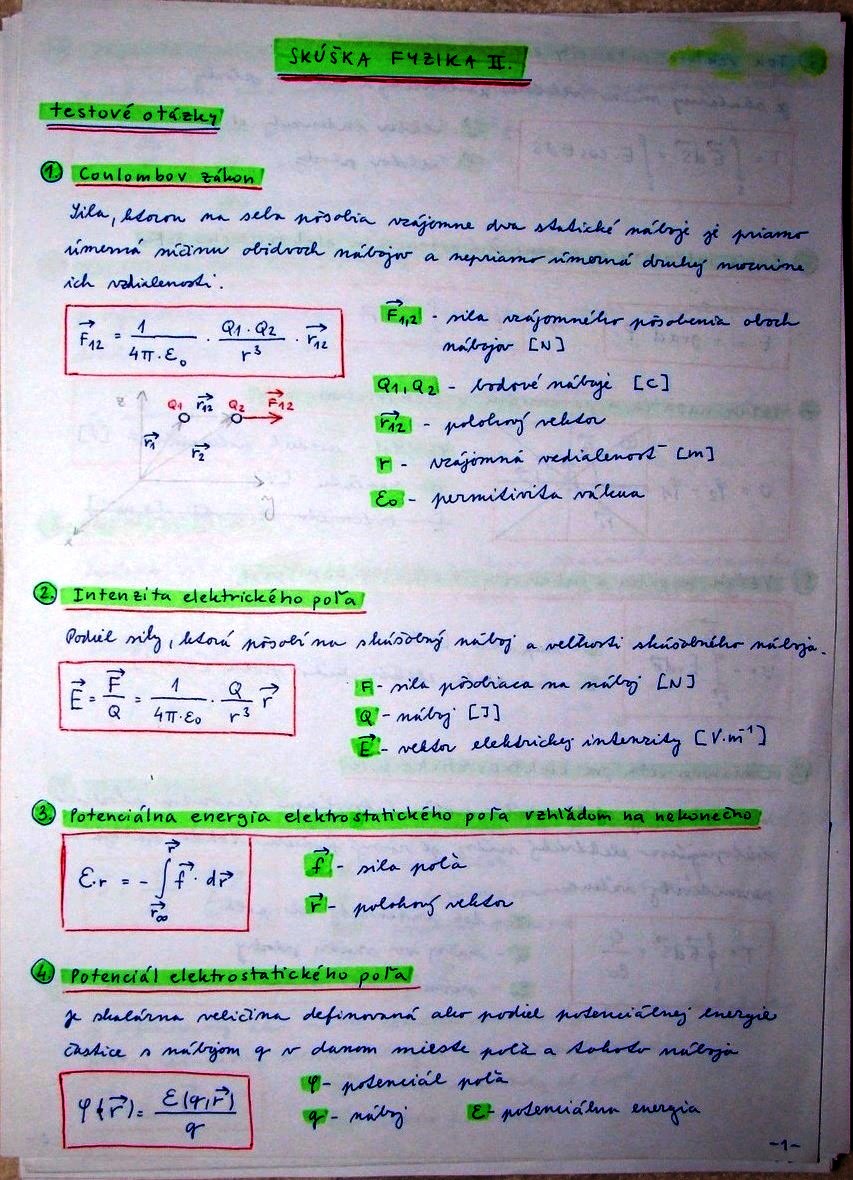 SKÚŠKA FYZIKA II.
testové otázky
1. Coulombov zákon
Sila, ktorou na seba pôsobia vzájomne dva statické náboje je priamo
úmerná súčinu obidvoch nábojov a nepriamo úmerná druhej mocnine
ich vzdialenosti.
F⃗12 = 1/(4π·ε₀) · (Q1·Q2)/r³ · r⃗12
F⃗1,2 - sila vzájomného pôsobenia oboch
nábojov [N]
Q1, Q2 - bodové náboje [C]
r⃗12 - polohový vektor
r - vzájomná vzdialenosť [m]
ε₀ - permitivita vákua
z Q1 r⃗12 Q2 F⃗12
r⃗1 r⃗2
y
x
2. Intenzita elektrického poľa
Podiel sily, ktorá pôsobí na skúšobný náboj a veľkosti skúšobného náboja.
E⃗ = F⃗/Q = 1/(4π·ε₀) · Q/r³ r⃗
F - sila pôsobiaca na náboj [N]
Q - náboj [J]
E⃗ - vektor elektrickej intenzity [V·m⁻¹]
3. Potenciálna energia elektrostatického poľa vzhľadom na nekonečno
Ɛ·r = - ∫ f⃗ · dr⃗
r⃗
r⃗∞
f⃗ - sila poľa
r⃗ - polohový vektor
4. Potenciál elektrostatického poľa
Je skalárna veličina definovaná ako podiel potenciálnej energie
častice s nábojom q v danom mieste poľa a tohoto náboja
φ(r⃗) = Ɛ(q,r⃗)/q
φ - potenciál poľa
q - náboj Ɛ - potenciálna energia
-1-